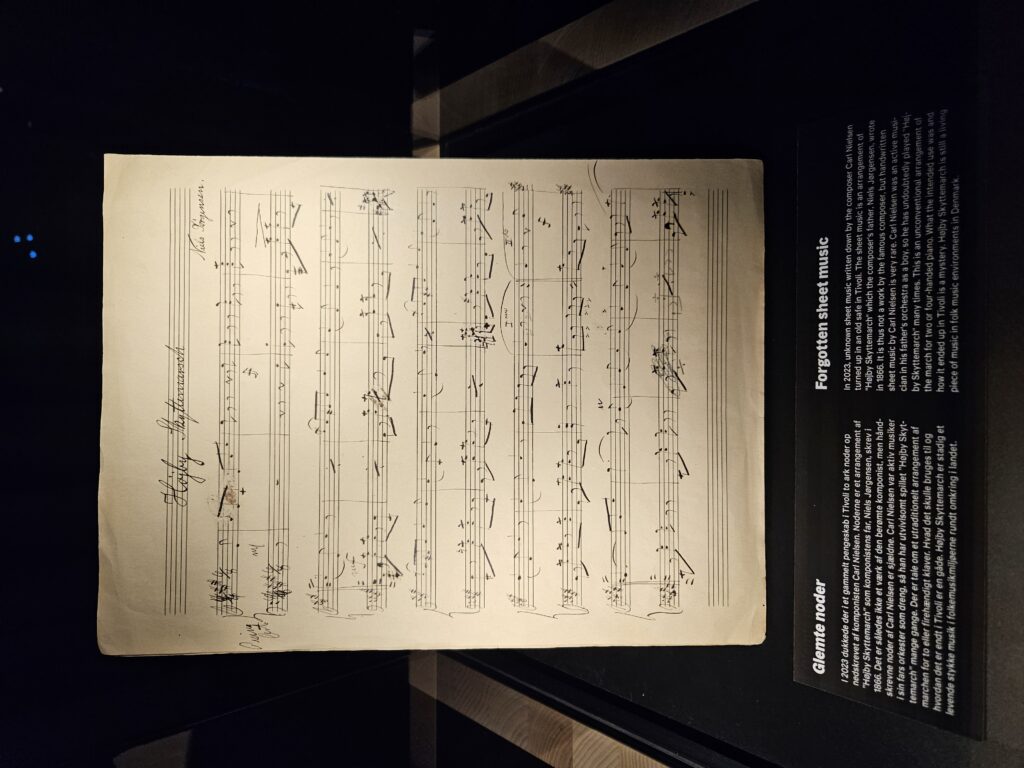 Højby Skyttemarsch
Niels Jörgensen.
Glemte noder
I 2023 dukkede der i et gammelt pengeskab i Tivoli to ark noder op
nedskrevet af komponisten Carl Nielsen. Noderne er et arrangement af
"Højby Skyttemarch" som komponistens far, Niels Jørgensen, skrev i
1866. Det er således ikke et værk af den berømte komponist, men hånd-
skrevne noder af Carl Nielsen er sjældne. Carl Nielsen var aktiv musiker
i sin fars orkester som dreng, så han har utvivlsomt spillet "Højby Skyt-
temarch" mange gange. Der er tale om et utraditionelt arrangement af
marchen for to eller firehændigt klaver. Hvad det skulle bruges til og
hvordan det er endt i Tivoli er en gåde. Højby Skyttemarch er stadig et
levende stykke musik i folkemusikmiljøerne rundt omkring i landet.
Forgotten sheet music
In 2023, unknown sheet music written down by the composer Carl Nielsen
turned up in an old safe in Tivoli. The sheet music is an arrangement of
"Højby Skyttemarch" which the composer's father, Niels Jørgensen, wrote
in 1866. It is thus not a work by the famous composer, but handwritten
sheet music by Carl Nielsen is very rare. Carl Nielsen was an active musi-
cian in his father's orchestra as a boy, so he has undoubtedly played "Høj-
by Skyttemarch" many times. This is an unconventional arrangement of
the march for two or four-handed piano. What the intended use was and
how it ended up in Tivoli is a mystery. Højby Skyttemarch is still a living
piece of music in folk music environments in Denmark.